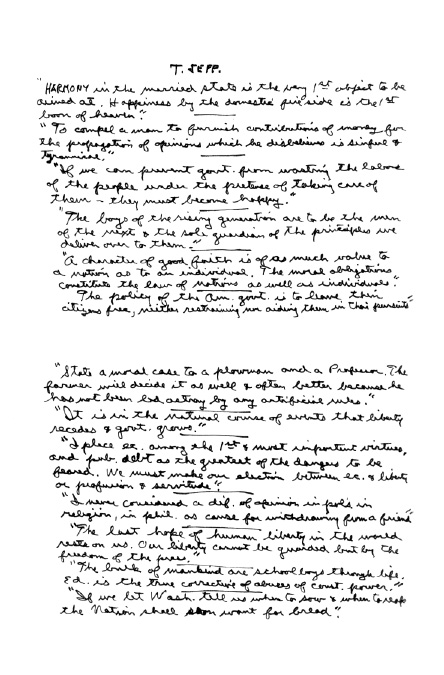 T. JEFF.
"HARMONY in the married state is the very 1st object to be
aimed at. Happiness by the domestic fire side is the 1st
boon of heaven".
"To compel a man to furnish contributions of money for
the propagation of opinions which he disbelieves is sinful &
tyrannical."
"If we can prevent govt. from wasting the labors
of the people under the pretense of taking care of
them – they must become happy."
"The boys of the rising generation are to be the men
of the next & the sole guardian of the principles we
deliver over to them."
"A character of good faith is of as much value to
a nation as to an individual. The moral obligations
constitute the law of nations as well as individuals."
The policy of the Am. govt. is to leave their
citizens free, neither restraining nor aiding them in their pursuits"
"State a moral case to a plowman and a Professor. The
farmer will decide it as well & often better because he
has not been led astray by any artificial rules."
"It is in the natural course of events that liberty
recedes & govt. grows."
"I place ec. among the 1st & most important virtues,
and pub. debt as the greatest of the dangers to be
feared. We must make our election between ec. & liberty
or profusion & servitude"
"I never considered a dif. of opinion in pols in
religion, in phil. as cause for withdrawing from a friend"
"The last hope of human liberty in the world
rests on us. Our liberty cannot be guarded but by the
freedom of the press."
"The bulk of mankind are school boys through life.
Ed. is the true corrective of abuses of const. power."
"If we let Wash. tell us when to sow & when to reap
the Nation shall soon want for bread".